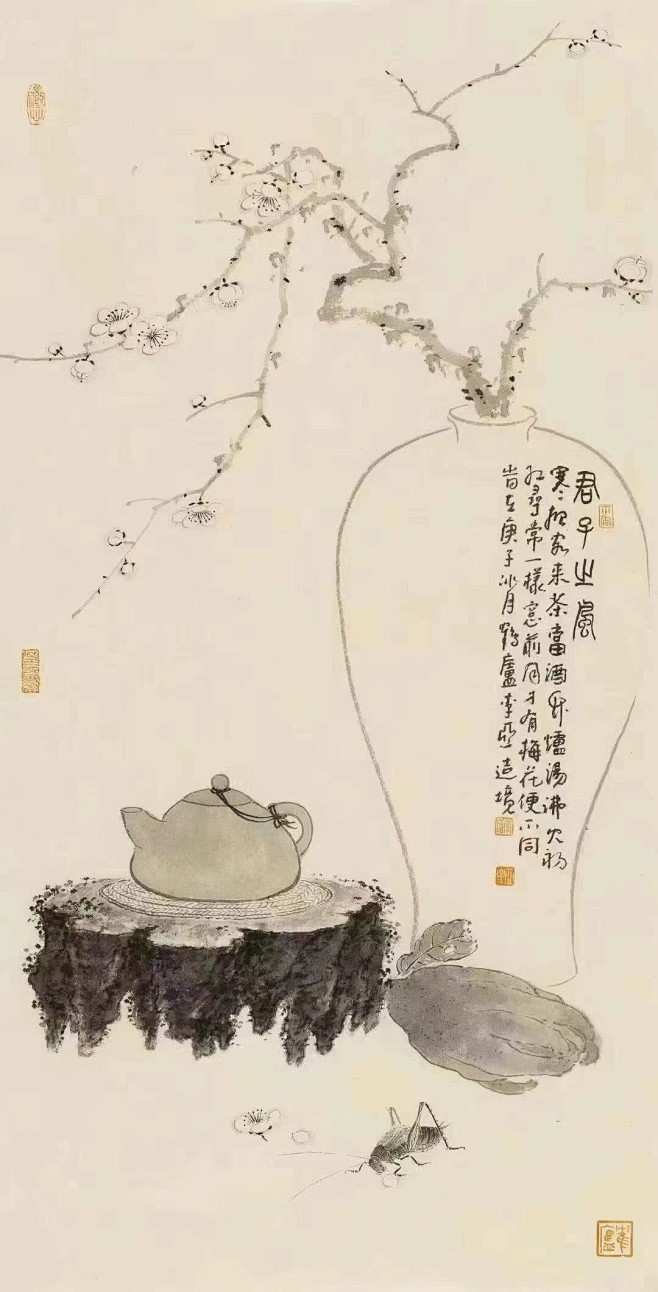 君子之風
寒夜客来茶當酒竹爐湯沸火初
紅尋常一樣窓前月才有梅花便不同
旹在庚子冰月鶴廬李亞造境